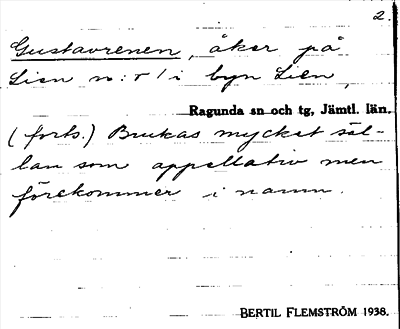 2.
Gustavrenen, åker på
Lien n:r 1 i byn Lien,
Ragunda sn och tg, Jämtl. län.
(forts.) Brukas mycket säl-
lan som appellativ men
förekommer i namn.
BERTIL FLEMSTRÖM 1938.